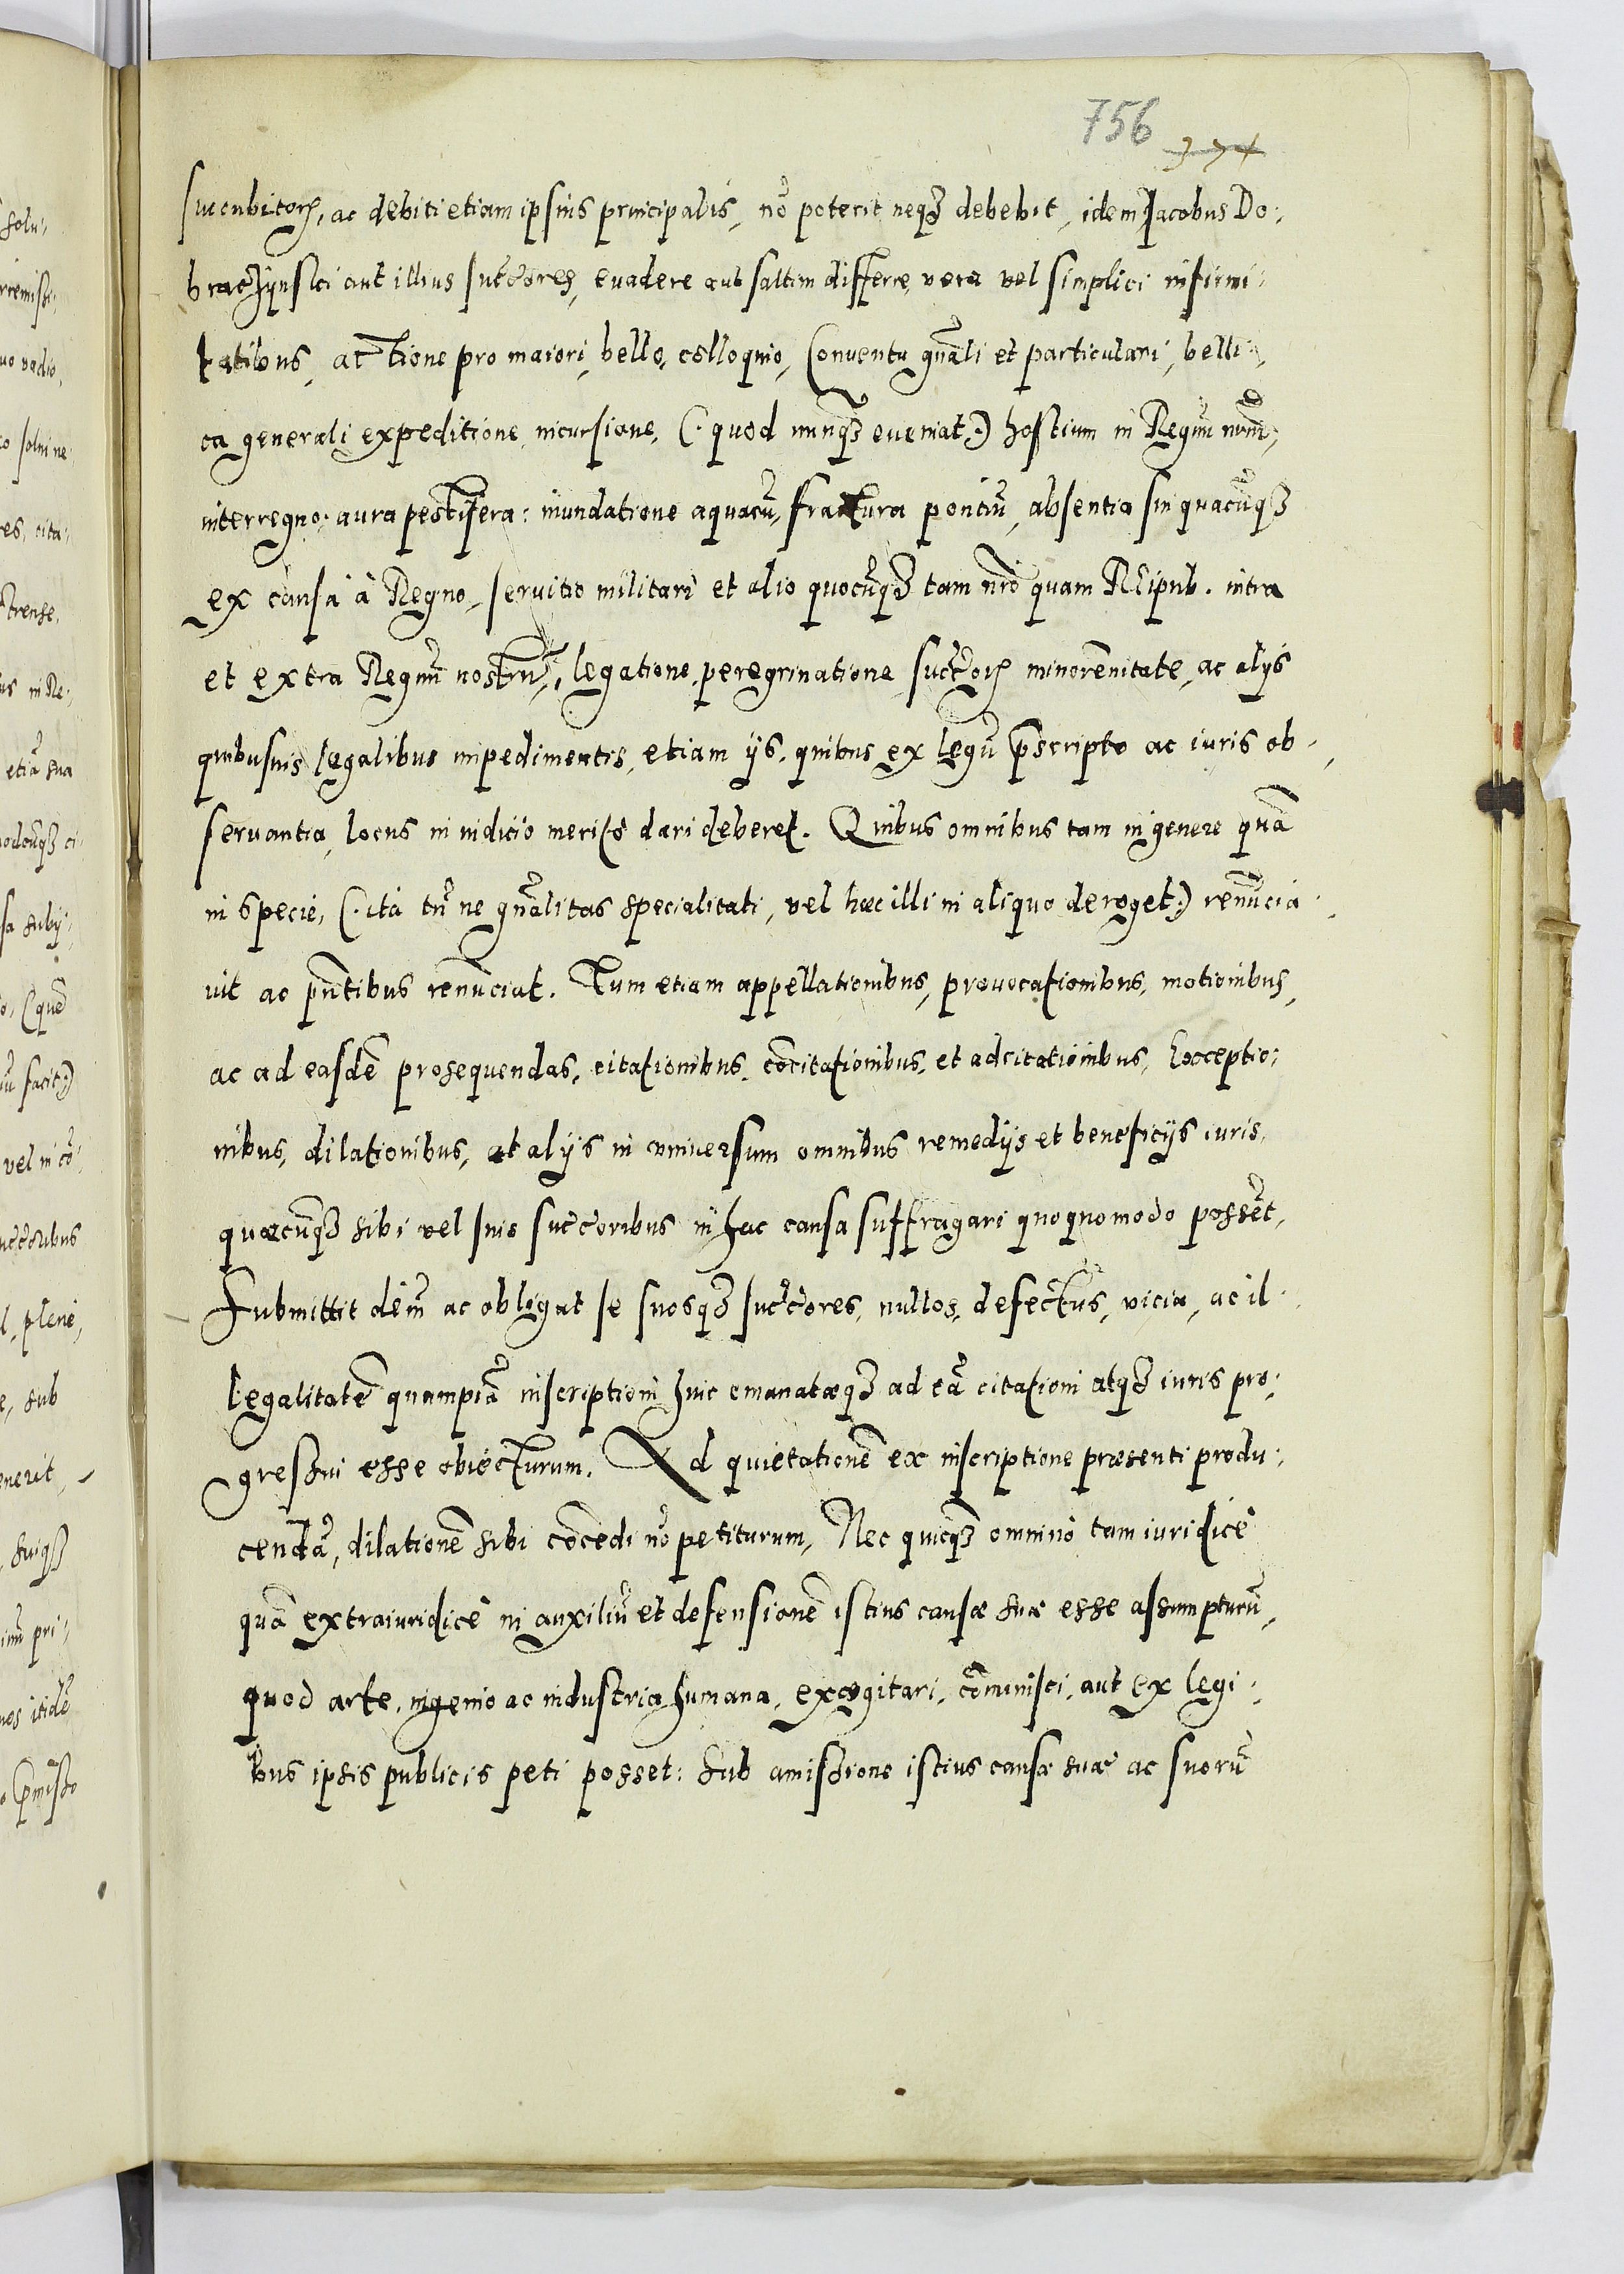 756
374
succubitoru, ac debiti etiam ipsius principalis, nõ poterit neqз debebit, idem Jacobus Do:
brachÿnsci aut illius succores, euadere aut saltim differre, vera vel simplici infirmi:
tatibus, actione pro maiori, bello, colloquio, Conuentu gnãli et particulari, belli:
ca generali expeditione, incursione, (: quod nunqз eueniat :) hostium in Regnũ nrũm,
interregno: aura pestifera: inundatione aquarũ, fractura pontiũ, absentia sui quacũqз
ex causa à Regno, seruitio militari et alio quocũqз tam nrõ quam Reipub. intra
et extra Regnũ nostrũ, legatione, peregrinatione, succorũ minorennitate, ac alijs
quibusuis legalibus impedimentis, etiam ijs, quibus ex legũ pscripto ac iuris ob:
seruantia, locus in iudicio meritò dari deberet. Quibus omnibus tam in genere quã
in specie, (: ita tñ ne gnãlitas specialitati, vel haec illi in aliquo deroget :) renũcia:
uit ac pñtibus renũciat. Tum etiam appellationibus, prouocationibus, motionibus,
ac ad easdẽ prosequendas, citationibus, cõcitationibus, et adcitationibus, Exceptio:
nibus, dilationibus, at alijs in vniuersum omnibus remedijs et beneficijs iuris,
quaecũqз sibi vel suis succoribus in hac causa suffragari quoquomodo possẽt,
Submittit deniq̃ ac obligat se suosqз succores, nullos, defectus, vicia, ac il:
legalitatẽ quampiã inscriptioni huic emanataeqз ad eã citationi atqз iuris pro:
gressui esse obiecturum. Ad quietationẽ ex inscriptione praesenti produ:
cendã, dilationẽ sibi cõcedi nõ petiturum, Nec quicqз omninò tam iuridicè
quã extraiuridicè in auxiliũ et defensionẽ istius causae suae esse assumpturũ,
quod arte, ingenio ac industria humana, excogitari, cõminisci, aut ex legi:
bus ipsis publicis peti posset: Sub amissione istius causae suae ac suorũ